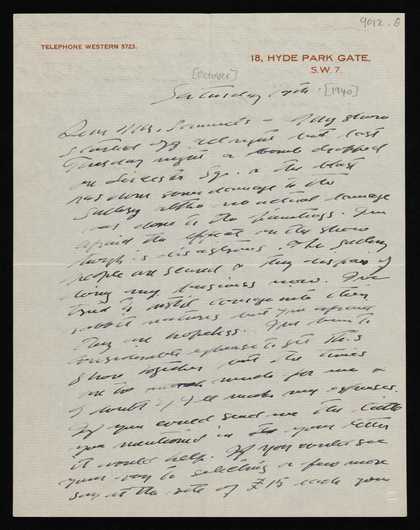 9012.6
TELEPHONE WESTERN 5723.
18, HYDE PARK GATE,
S.W. 7.
[October]
Saturday [1940]
Dear Mrs. - My show
started off all right but last
Tuesday night a bomb dropped
on Leicester Sq. & the blast
has done some damage to the
Gallery altho no actual damage
was done to the paintings. I'm
afraid the effect on the show
though is disastrous. The gallery
people are scared & they despair of
doing any business now. I've
tried to
rabbit natures but
they are hopeless. I've been to
considerable expense to get this
show together but the times
are too much for me &
I doubt if I'll make my expenses.
If you would send me the little
you mentioned in your letter
it would help. If you could see
your way to selecting a few more
say at the rate of £15 each you